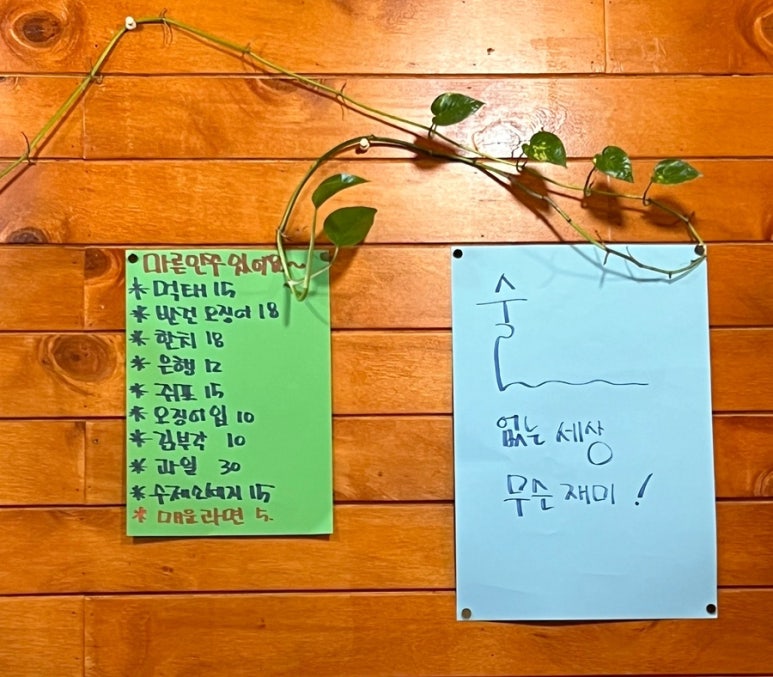 마른안주 있어요~
* 먹태 15
* 반건 오징어 18
* 한치 18
* 은행 12
* 쥐포 15
* 오징어입 10
* 김부각 10
* 과일 30
* 수제소세지 15
* 매운라면 5.
술
없는 세상
무슨 재미!